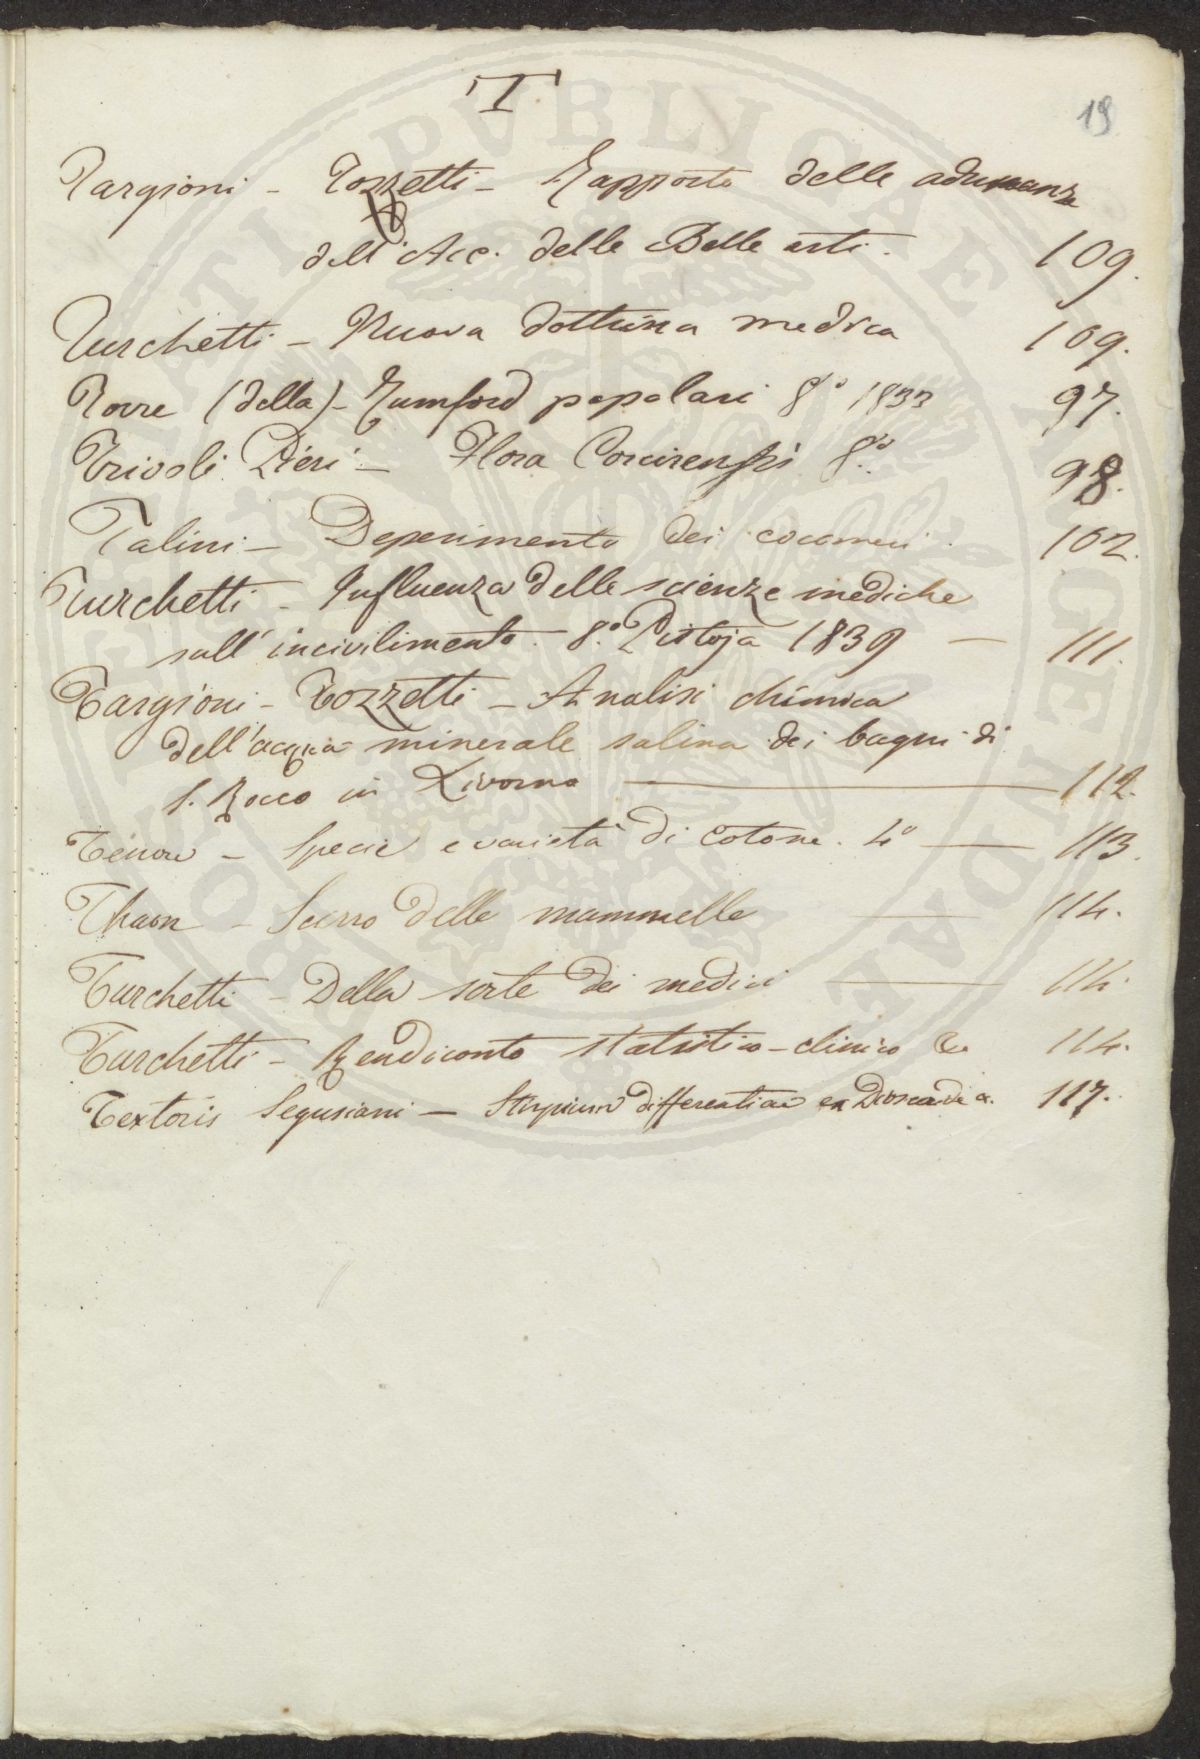 T
19
Targioni - Tozzetti - Rapporto delle adunanze
dell' Acc. delle Belle arti. 109.
Turchetti - Nuova dottrina medica 109.
Torre (della) - Rumford popolari 8.º 1833 97.
Trivoli Pieri - Flora Corcirensis 8.º 98.
Talini - Deperimento dei cocomeri 102.
Turchetti - Influenza delle scienze mediche
sull' incivilimento. 8.º Pistoja 1839 — 111.
Targioni - Tozzetti - Analisi chimica
dell'acqua minerale salina dei bagni di
S. Rocco in Livorno — 112.
Tenore - Specie e varietà di cotone. 4º — 113.
Thaon - Scirro delle mammelle — 114.
Turchetti - Della sorte dei medici — 114.
Turchetti - Rendiconto statistico-clinico &c 114.
Textoris Segusiani - Stirpium differentiae ex Dioscoride &. 117.